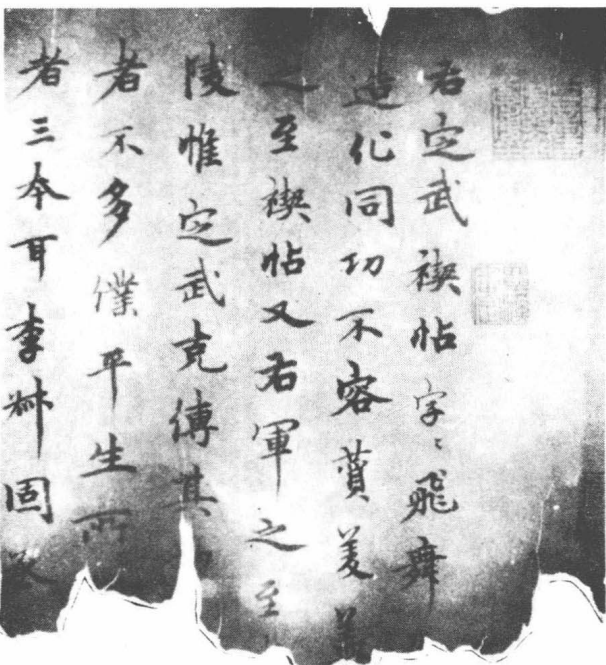 右定武禊帖字〻飛舞
造化同功不容贊美
之至禊帖又右軍之至
陵惟定武克傳其
者不多僕平生所
者三本耳李叔固